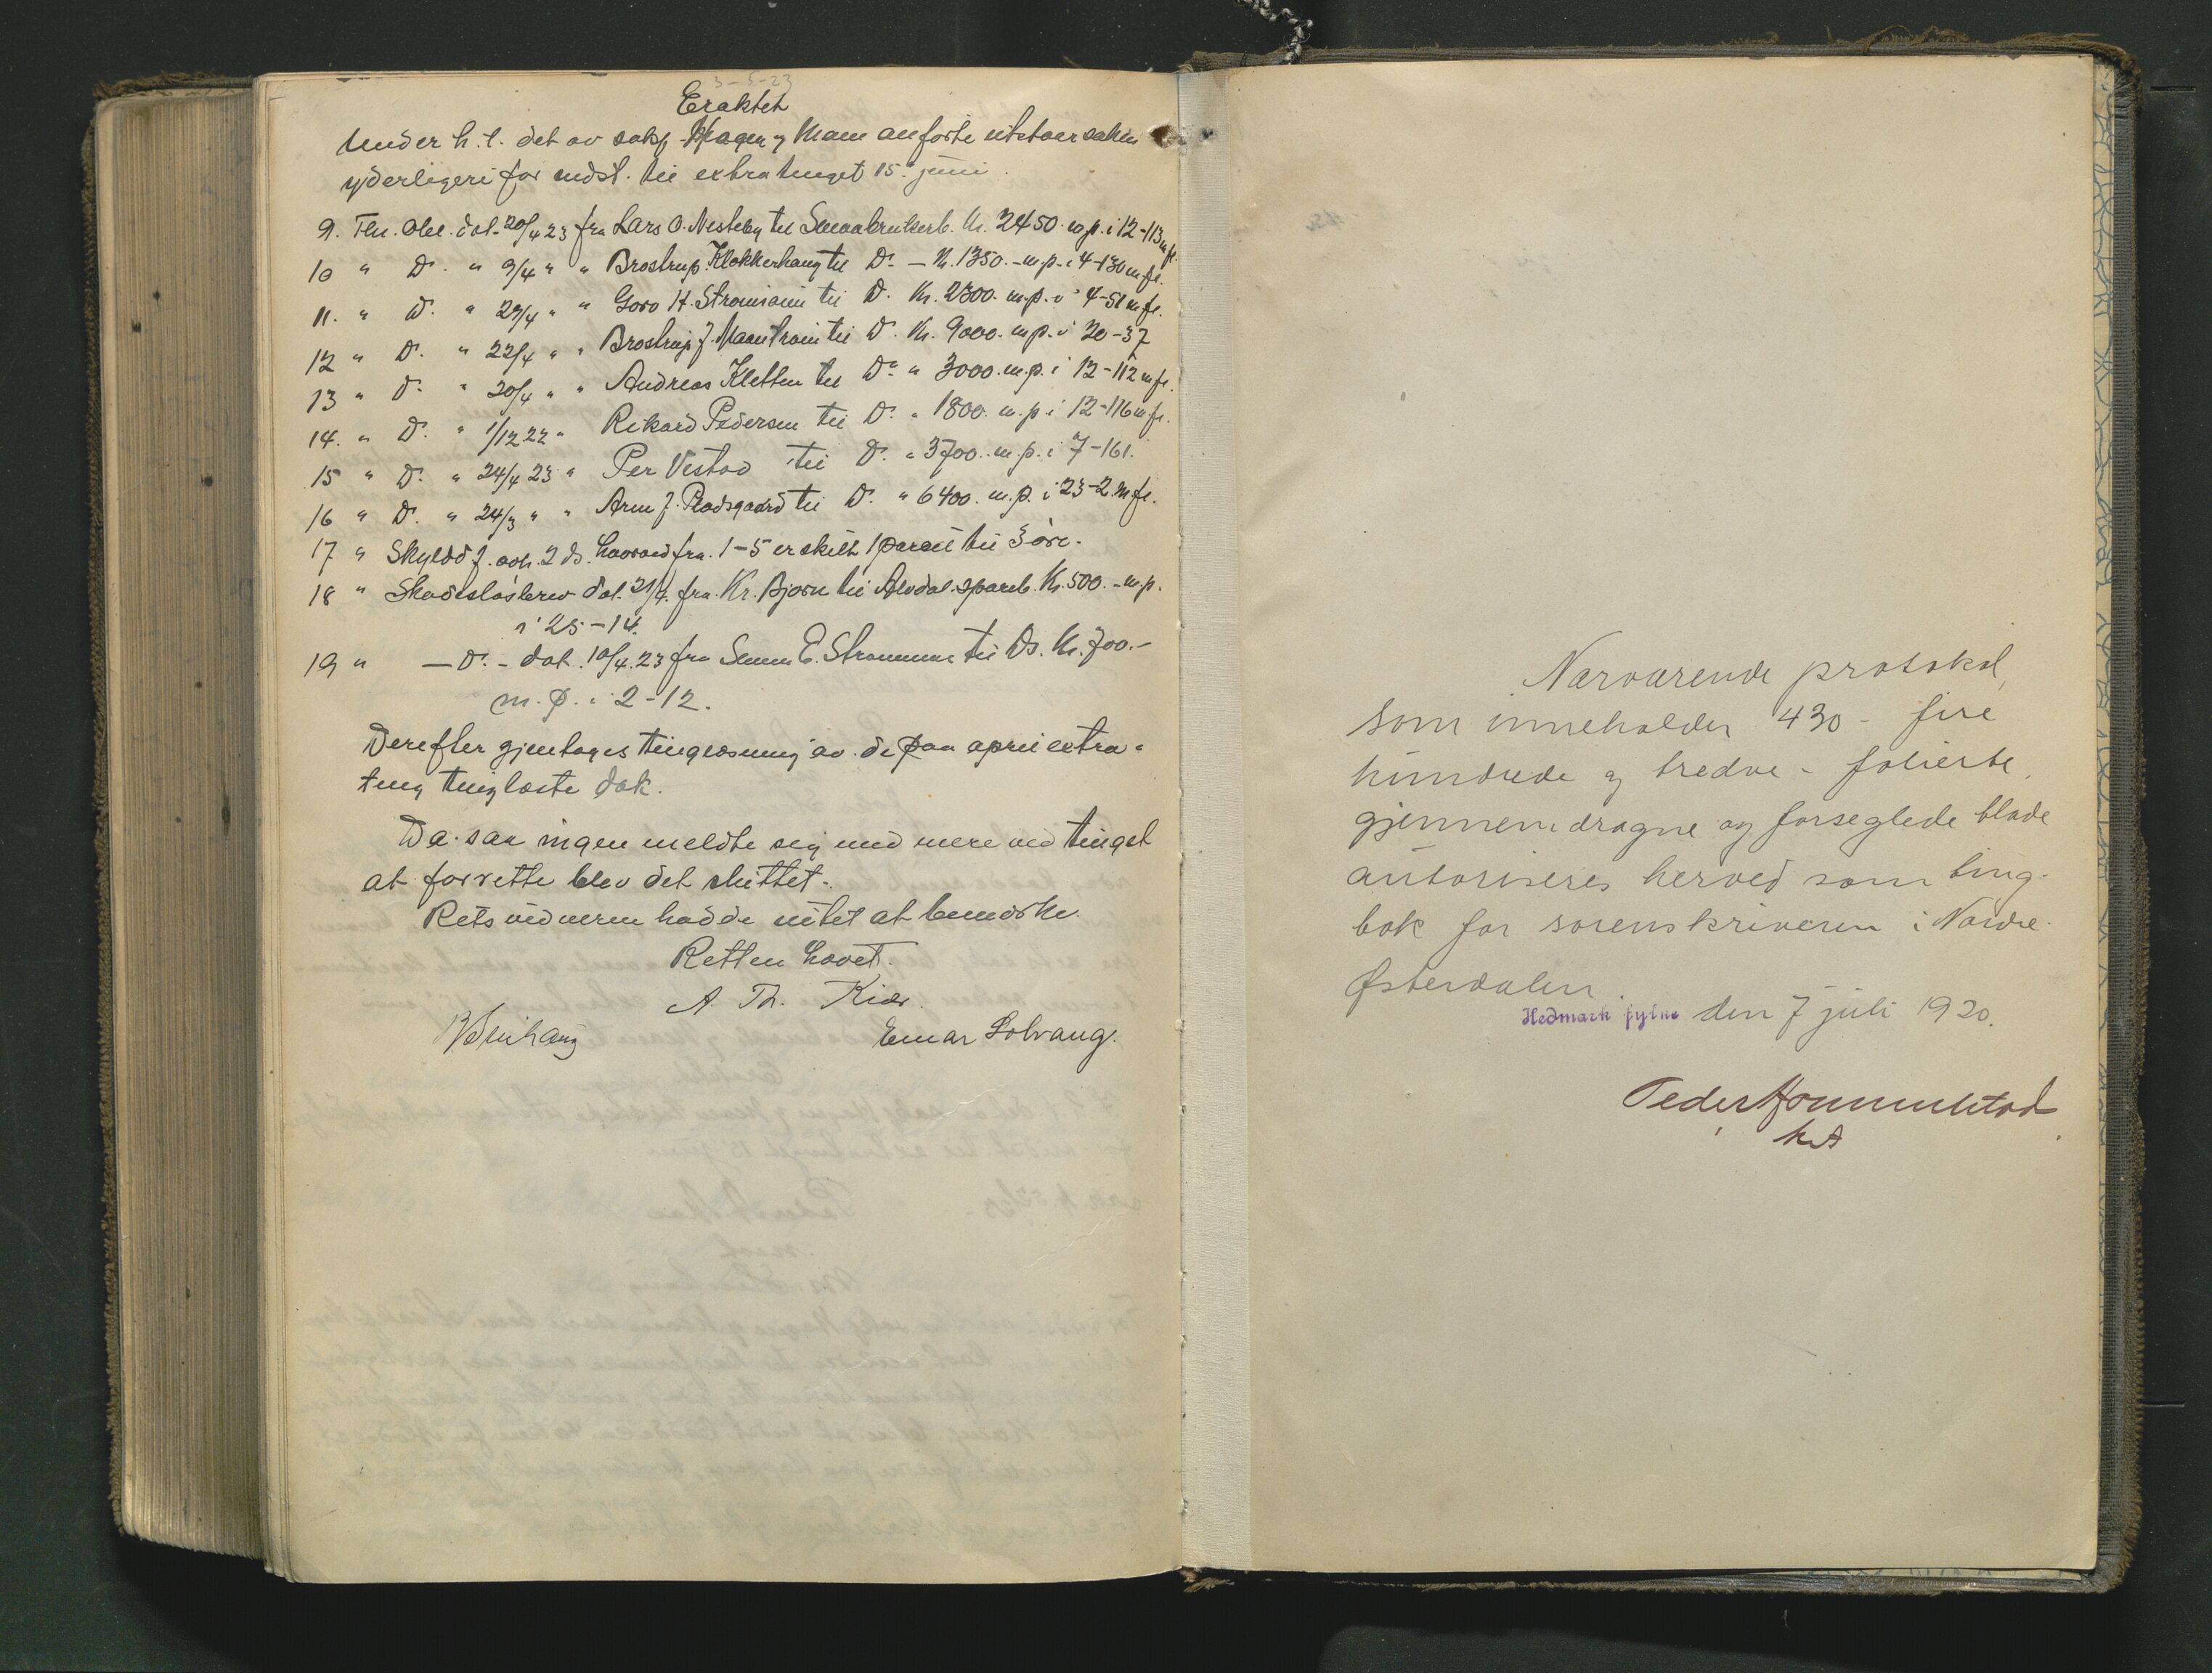 3-5-23
Eraktet
Under h.t. det av sakf. Hagen og Mam anförte utstaar saken
yderligere for indst. til extratinget 15. juni.
9. Thl. Obl. dat. 20/4 23 fra Lars O. Nesteby til Smaabrukerb. Kr. 2450. m.p. i 12-113 m fl.
10 " Do. " 9/4 " " Brostrup Klokkerhaug til Do. - Kr. 1350.- m.p. i 4-130 m fl.
11. " Do. " 29/4 " " Goro H. Strømsøien til Do. Kr. 2300. m.p. i 4-51 m fl.
12 " Do. " 22/4 " " Brostrup J. til Do. Kr. 9000. m.p. i 20-37
13 " Do. " 20/4 " " Andreas Kletten til Do. " 3000. m.p. i 12-112 m fl.
14. " Do. " 1/12 22 " Rikard Pedersen til Do. " 1800. m.p. i 12-116 m fl.
15 " Do. " 24/4 23 " Per Vestad til Do. " 3700. m.p. i 7-161.
16 " Do. " 24/3 " " Arne J. til Do. " 6400. m.p. i 23-2 m fl.
17 " Skylddf. avh. 2 ds. hvorved fra 1-5 er skilt 1 parcel til 3 øre.
18 " Skadesløsbrev dat. 21/4. fra Kr. Bjørn til Alvdal spareb. Kr. 500.- m.p.
i 25-14.
19 " - Do. - dat. 10/4. 23 fra E. Strømmen til Ds. Kr. 700.-
m.p. i 2-12.
Derefter gjentages tinglæsning av de paa april extra-
ting tinglæste dok.
Da saa ingen meldte sig med mere ved tinget
at forrette blev det sluttet.
Retsvidnerne hadde intet at bemerke.
Retten hævet.
A. Th. Kiær.
Einar Solvang.
Nærværende protokol,
som inneholder 430 - fire
hundrede og tredve - folierte,
gjennemdragne og forseglede blade
autoriseres herved som ting-
bok for sorenskriveren i Nordre
Østerdalen.
Hedmark fylke den 7 juli 1920.
Peder
kst